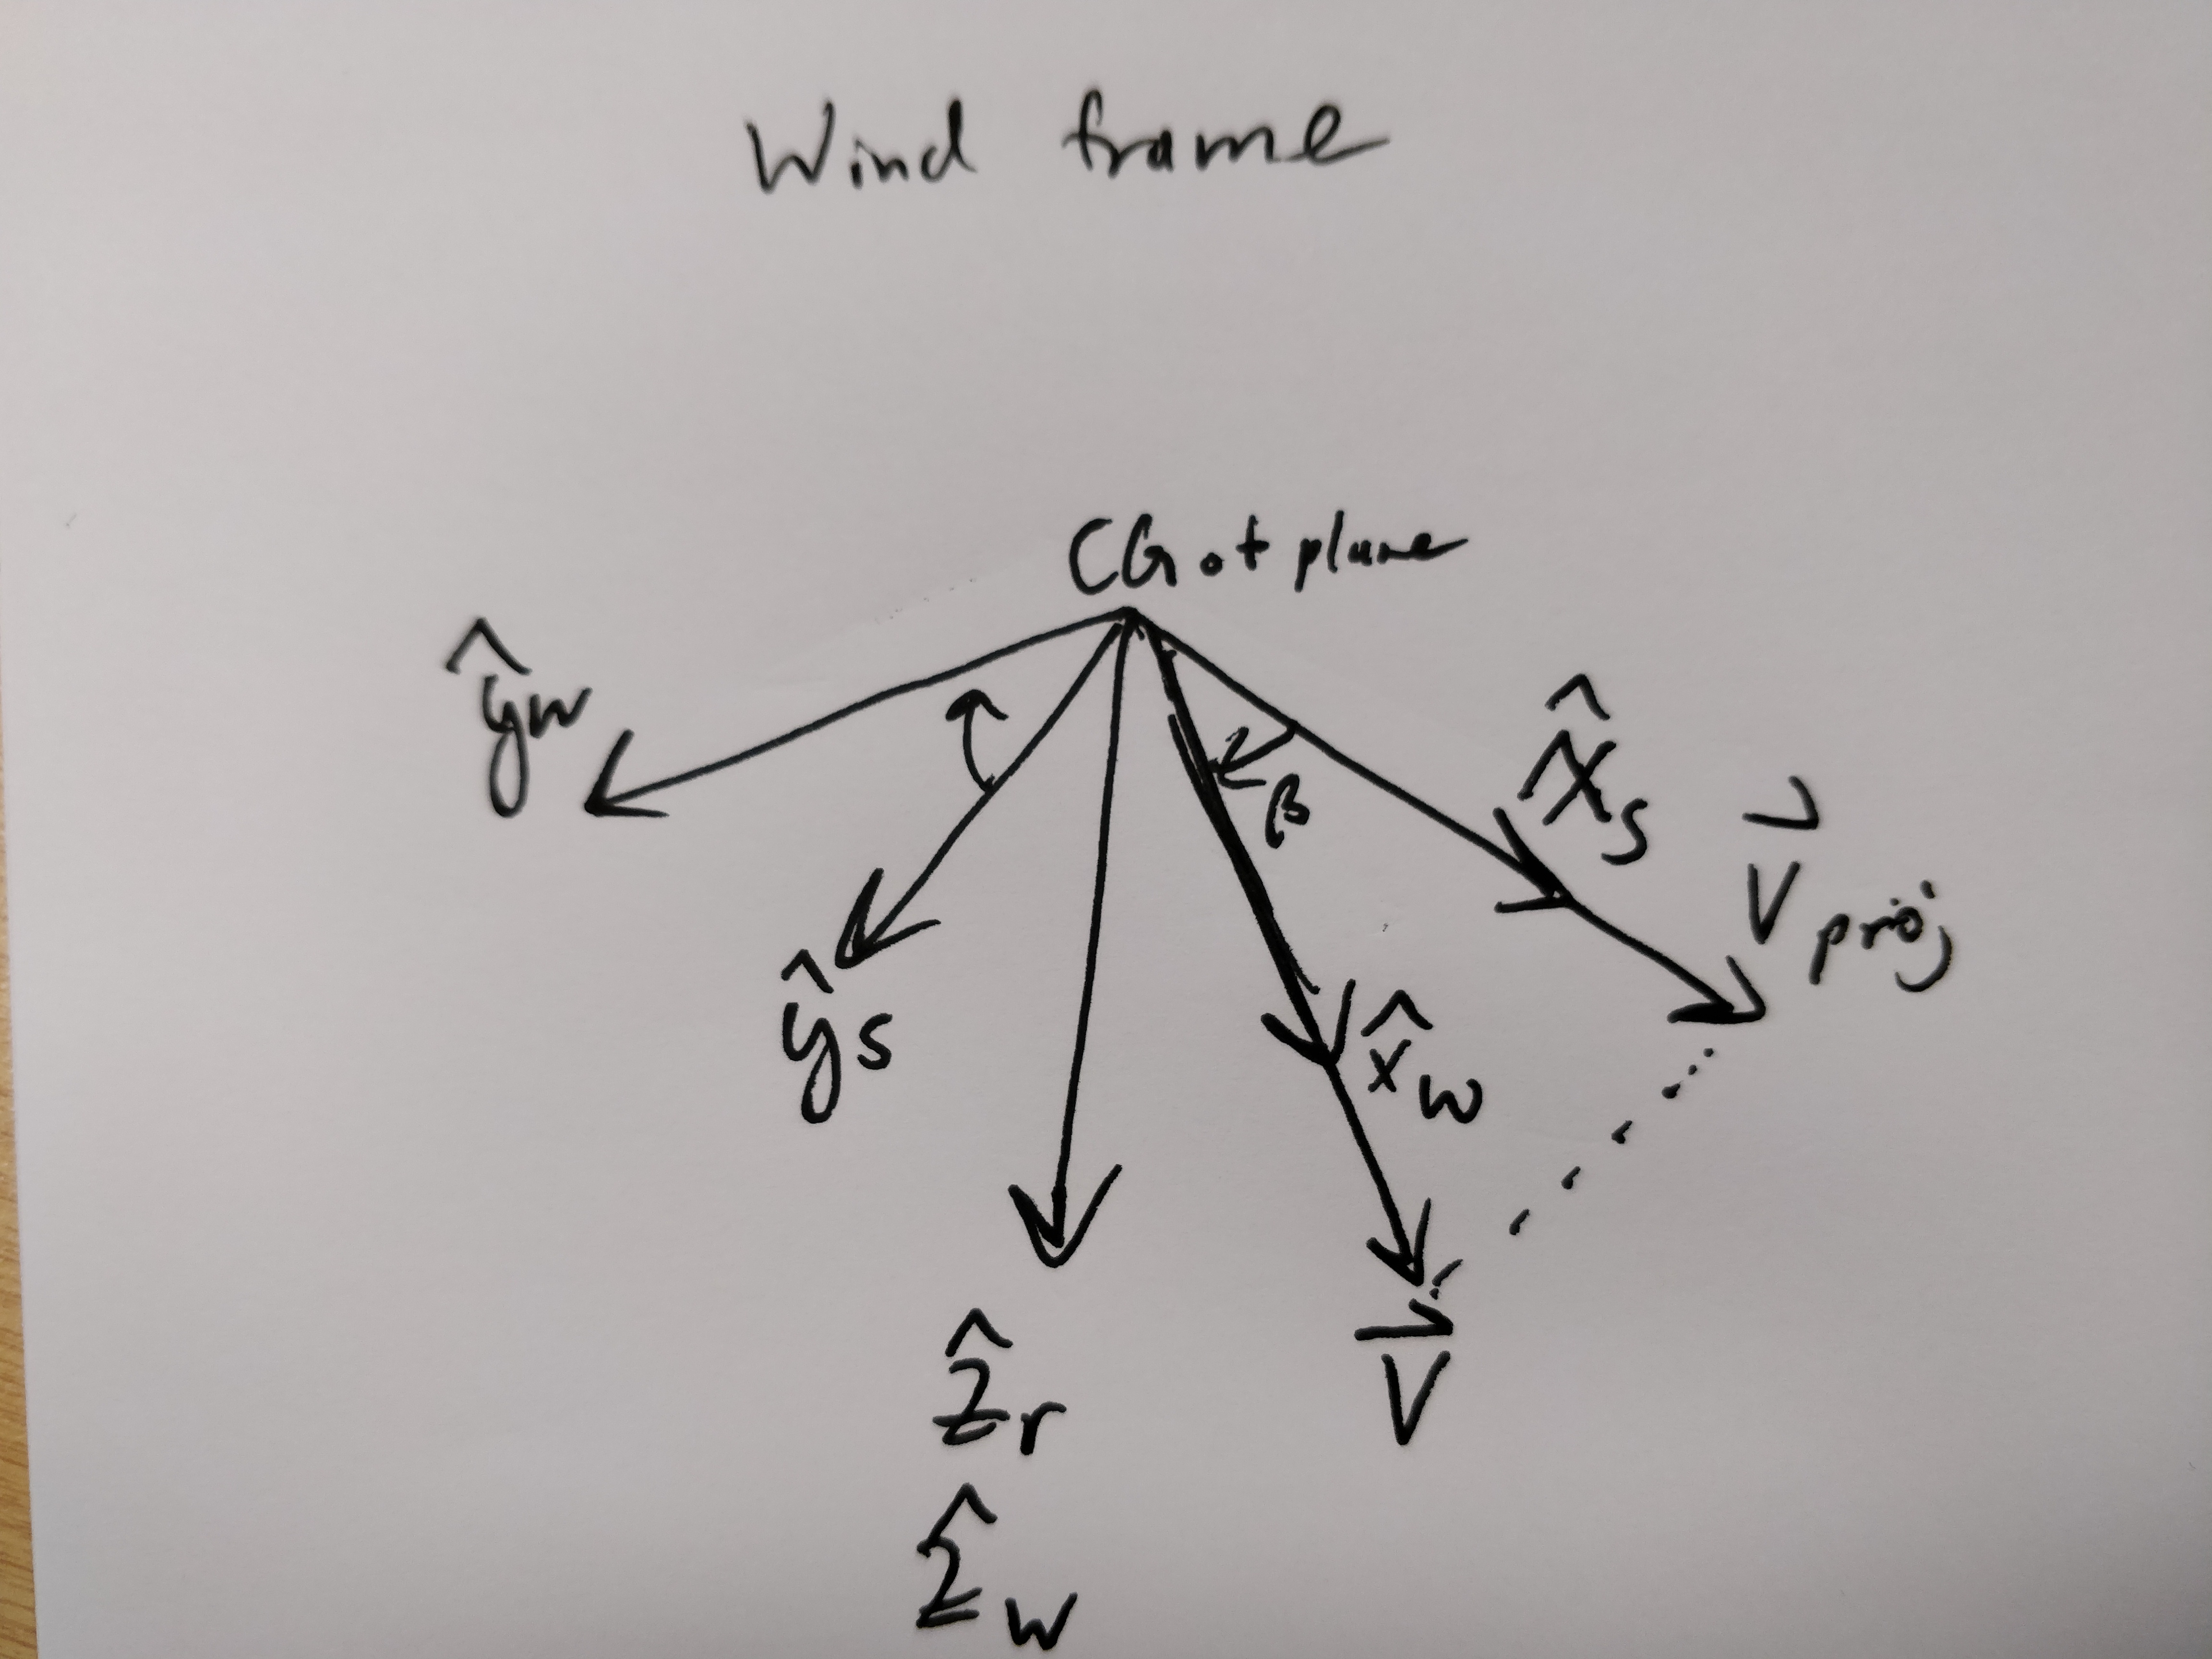 Wind frame
CG of plane
ŷw
x̂s
V⃗proj
β
ŷs
x̂w
ẑr
V⃗
ẑw